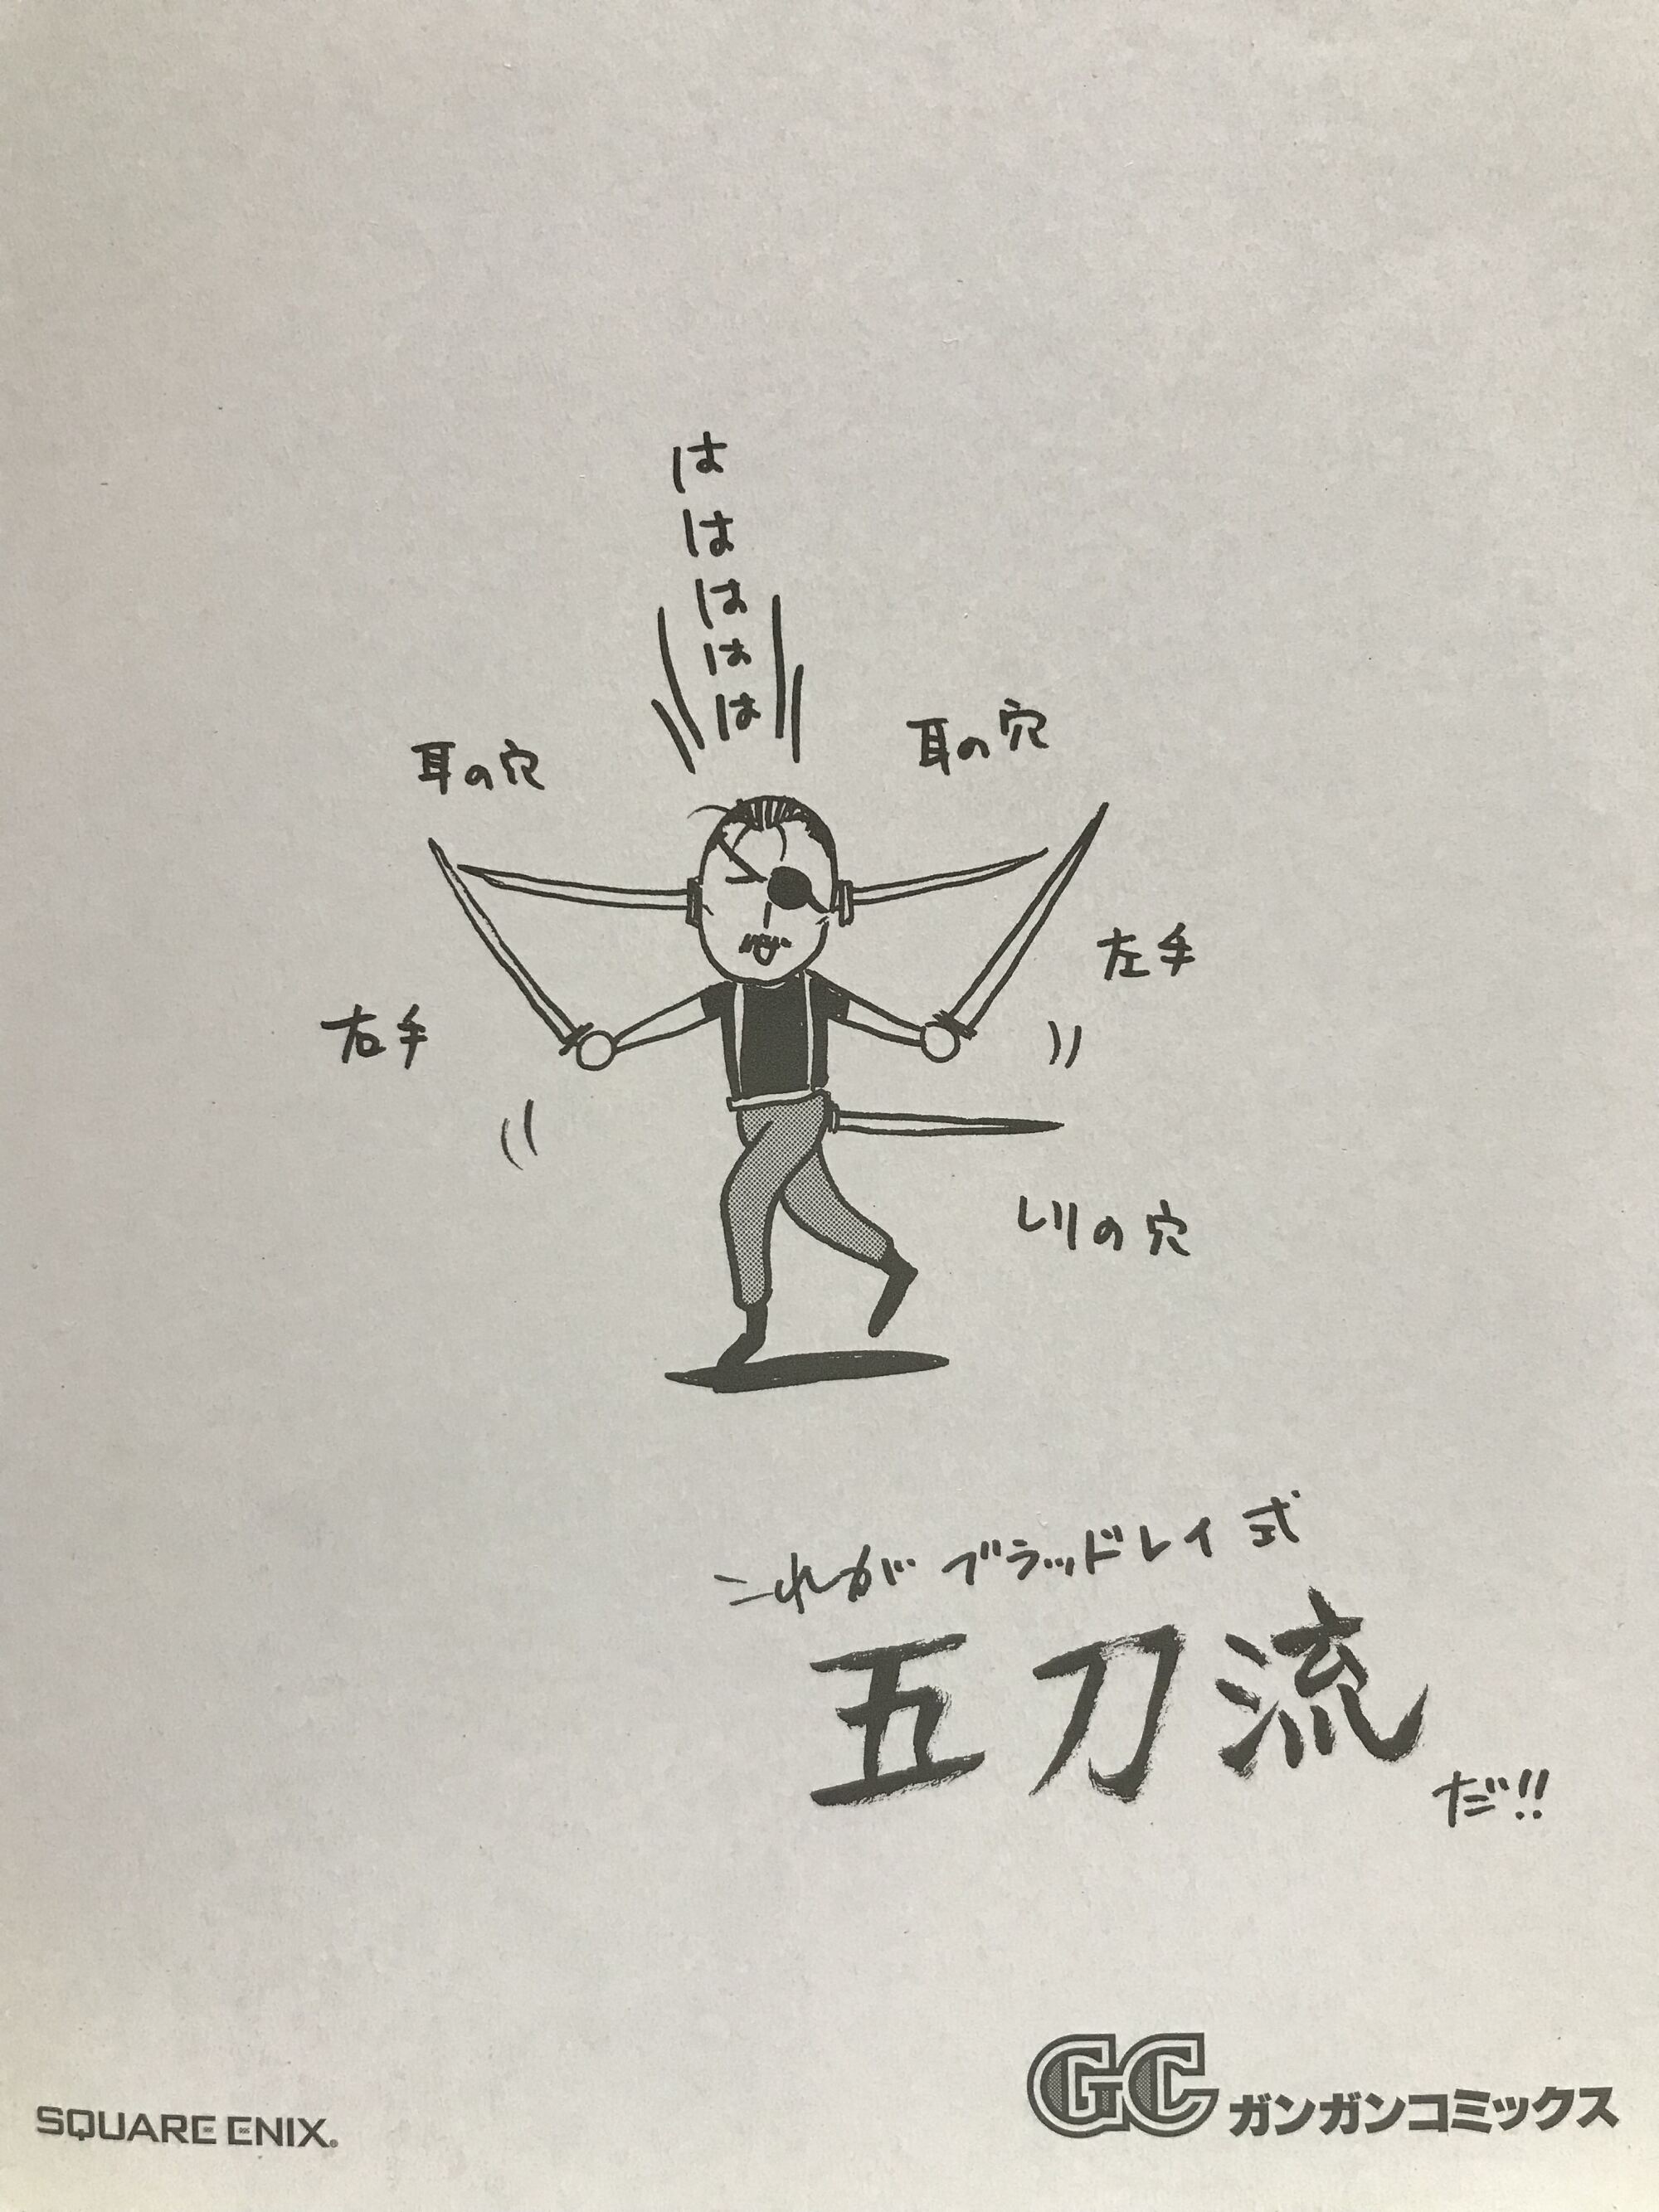 はははははは
耳の穴
耳の穴
左手
右手
しりの穴
これがブラッドレイ式
五刀流
だ!!
SQUARE ENIX®
GC ガンガンコミックス